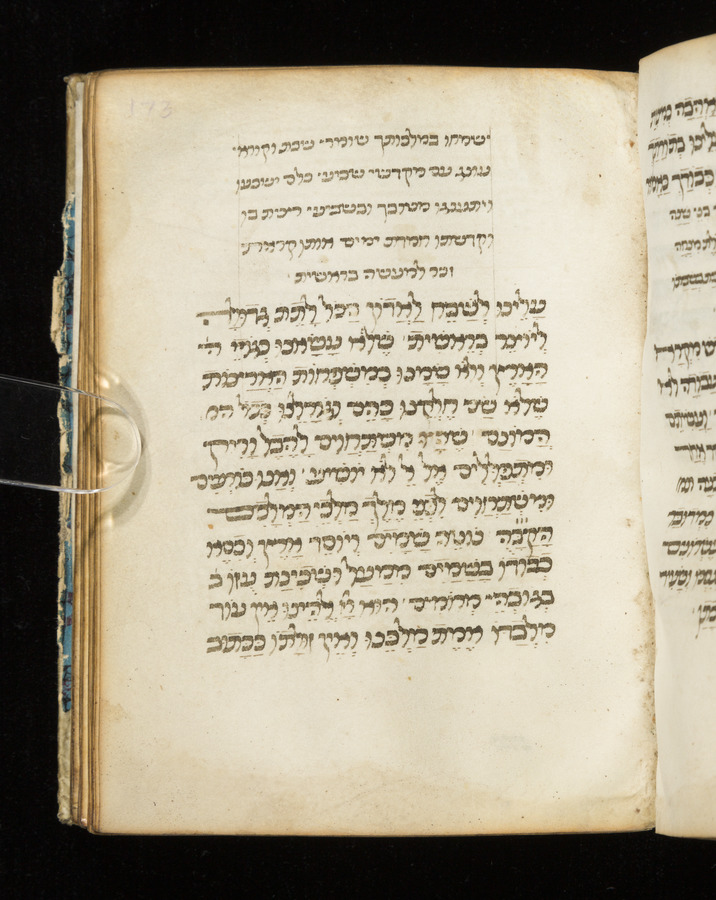 ישמחו במלכותך שומרי שבת וקוראי
עונג עם מקדשי שביעי כלם ישבעו
ויתענגו מטובך ובשביעי רצית בו
וקדשתו חמדת ימים אותו קראת
זכר למעשה בראשית
עלינו לשבח לאדון הכל לתת גדולה
ליוצר בראשית שלא עשאנו כגויי ה
הארץ ולא שמנו כמשפחות האדמות
שלא שם חלקנו כהם וגורלנו ככל המ
המונם משתחוים להבל וריק
ומתפללים אל אל לא יושיע ואנו כורעים
ומשתחוים לפני מלך מלכי המלכים
הקבה נוטה שמים ויוסד ארץ וכסא
כבודו בשמים ממעל ושכינת עוזו ב
בגובהי מרומים הוא אלהינו אין עוד
מלבדו אמת מלכנו ואין זולתו ככתוב